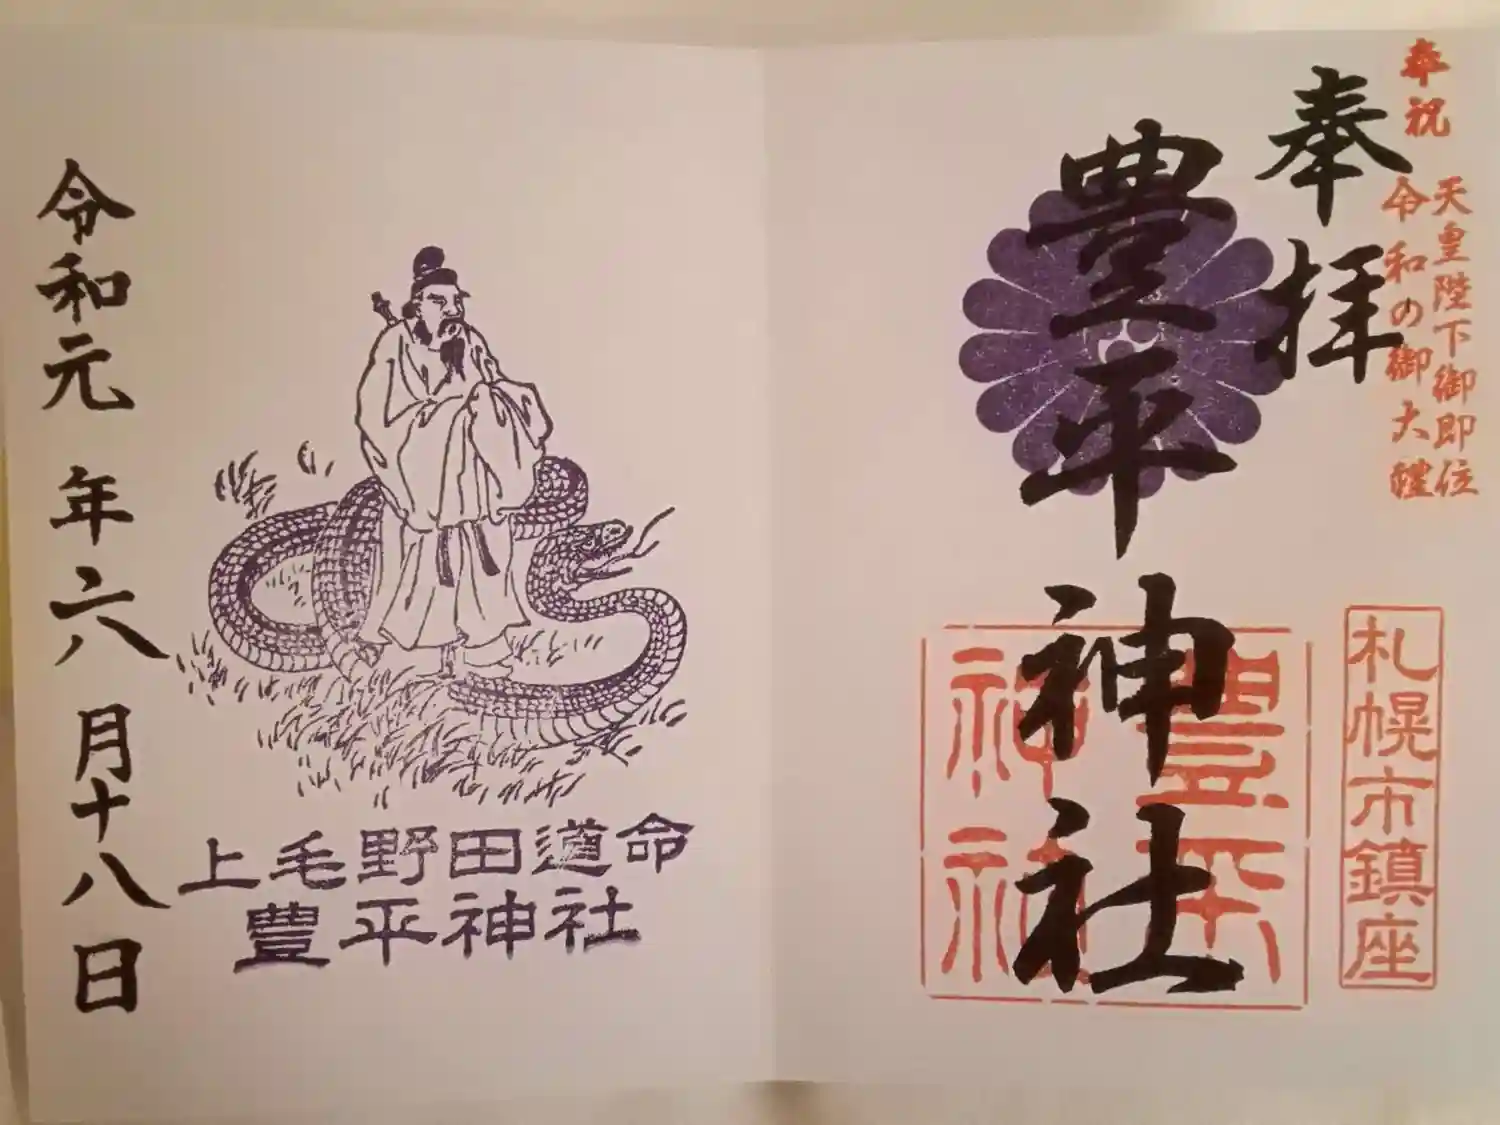 奉祝
天皇陛下御即位
令和の御大禮
奉拝
豊平神社
豊平神社
札幌市鎮座
上毛野田道命
豊平神社
令和元年六月十八日